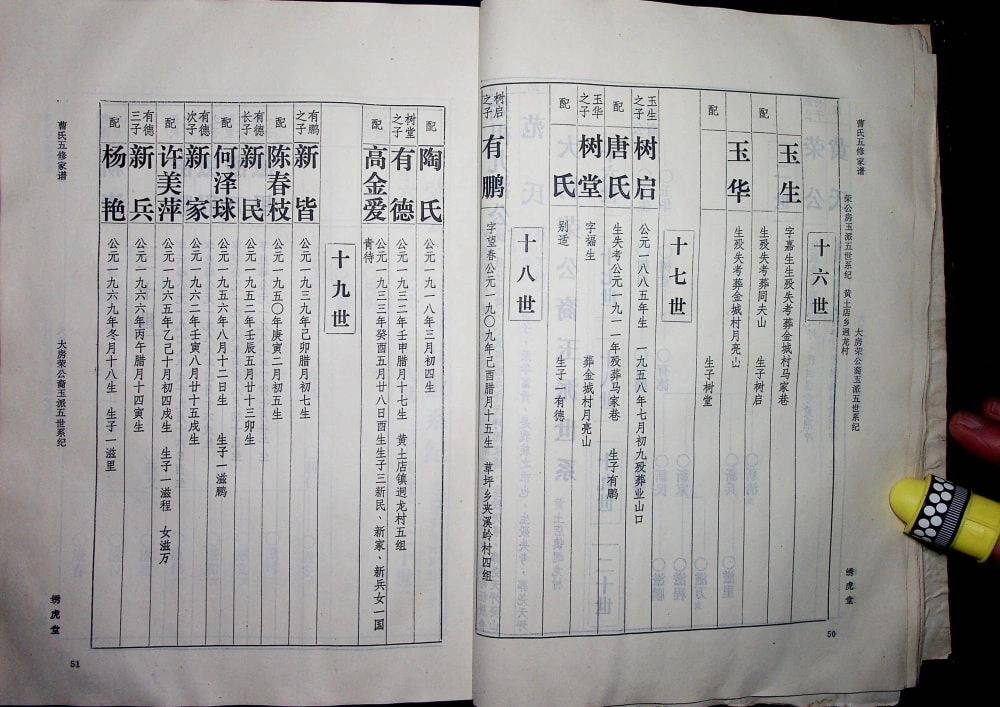 曹氏五修家谱
大房荣公裔玉派五世系纪
荣公房玉派五世系纪 黄土店乡迥龙村
绣虎堂
50
十六世
玉生 字嘉生生殁失考葬金城村马家巷
配 生殁失考葬同夫山 生子树启
玉华 生殁失考葬金城村月亮山
配 生子树堂
十七世
玉生之子 树启 公元一八八五年生 一九五八年七月初九殁葬业山口
配 唐氏 生失考公元一九二一年殁葬马家巷 生子有鹏
玉华之子 树堂 字福生 葬金城村月亮山
配 氏 别适 生子一有德
十八世
树启之子 有鹏 字望春公元一九〇九年己酉腊月十五生 草坪乡夹溪岭村四组
配 陶氏 公元一九一八年三月初四生
树堂之子 有德 公元一九三二年壬申腊月十七生 黄土店镇迥龙村五组
配 高金爱 公元一九三三年癸酉五月廿八日酉生生子三新民、新家、新兵女一国青待
十九世
有鹏之子 新皆 公元一九三九年己卯腊月初七生
配 陈春枝 公元一九五〇年庚寅二月初五生
有德长子 新民 公元一九五二年壬辰五月廿十三卯生
配 何泽球 公元一九五六年八月十二日生 生子一滋鹏
有德次子 新家 公元一九六二年壬寅八月廿十五戌生
配 许美萍 公元一九六五年乙己十月初四戍生 生子一滋程 女滋万
有德三子 新兵 公元一九六六年丙午腊月十四寅生
配 杨艳 公元一九六九年冬月十八生 生子一滋里
曹氏五修家谱
大房荣公裔玉派五世系纪
绣虎堂
51